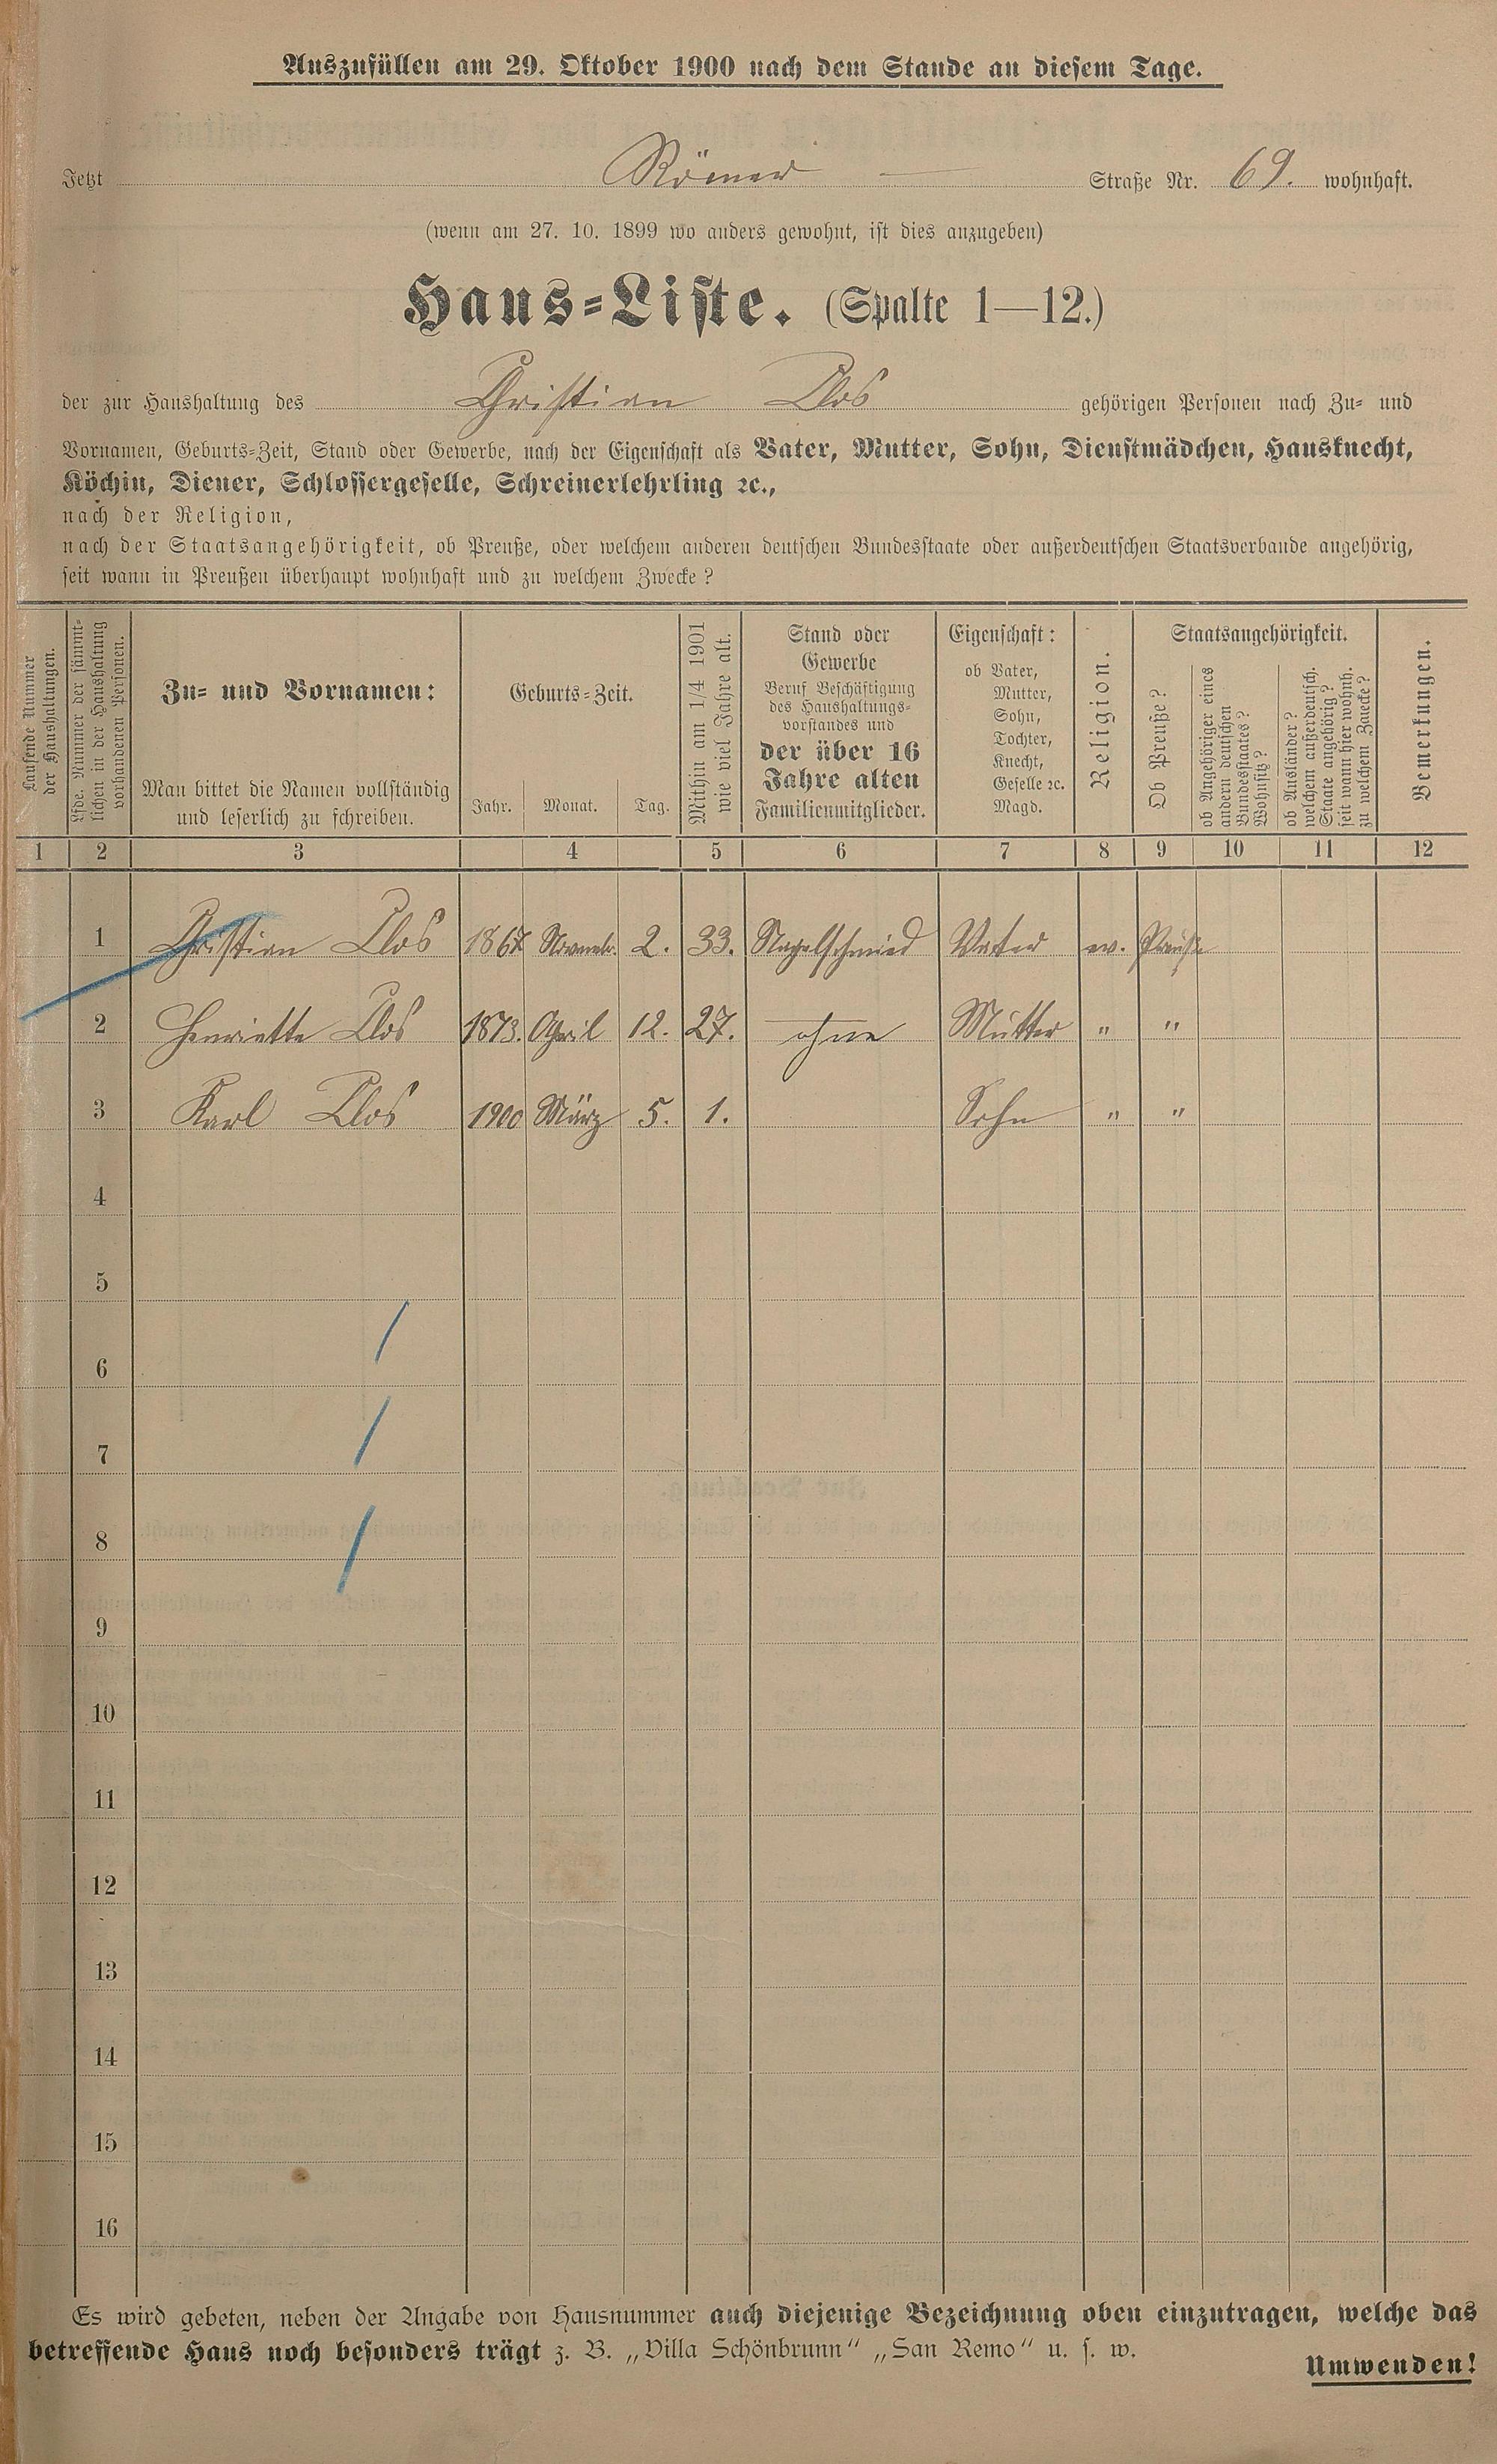 Auszufüllen am 29. Oktober 1900 nach dem Stande an diesem Tage.
Jetzt Römer — Straße Nr. 69. wohnhaft.
(wenn am 27. 10. 1899 wo anders gewohnt, ist dies anzugeben)
Haus-Liste. (Spalte 1—12.)
der zur Haushaltung des Christian Clos gehörigen Personen nach Zu- und
Vornamen, Geburts-Zeit, Stand oder Gewerbe, nach der Eigenschaft als Vater, Mutter, Sohn, Dienstmädchen, Hausknecht,
Köchin, Diener, Schlossergeselle, Schreinerlehrling ꝛc.,
nach der Religion,
nach der Staatsangehörigkeit, ob Preuße, oder welchem anderen deutschen Bundesstaate oder außerdeutschen Staatsverbande angehörig,
seit wann in Preußen überhaupt wohnhaft und zu welchem Zwecke?
Laufende Nummer
der Haushaltungen.
Lfde. Nummer der sämmt-
lichen in der Haushaltung
vorhandenen Personen.
Zu- und Vornamen:
Man bittet die Namen vollständig
und leserlich zu schreiben.
Geburts-Zeit.
Jahr. Monat. Tag.
Mithin am 1/4 1901
wie viel Jahre alt.
Stand oder
Gewerbe
Beruf Beschäftigung
des Haushaltungs-
vorstandes und
der über 16
Jahre alten
Familienmitglieder.
Eigenschaft:
ob Vater,
Mutter,
Sohn,
Tochter,
Knecht,
Geselle ꝛc.
Magd.
Religion.
Staatsangehörigkeit.
Ob Preuße?
ob Angehöriger eines
andern deutschen
Bundesstaates?
Wohnsitz?
ob Ausländer?
welchem außerdeutsch.
Staate angehörig?
seit wann hier wohnh.
zu welchem Zwecke?
Bemerkungen.
1 2 3 4 5 6 7 8 9 10 11 12
1 Christian Clos 1867 Novemb. 2. 33. Nagelschmied Vater ev. Preuße
2 Henriette Clos 1873. April 12. 27. ohne Mutter " "
3 Karl Clos 1900 März 5. 1. Sohn " "
4
5
6
7
8
9
10
11
12
13
14
15
16
Es wird gebeten, neben der Angabe von Hausnummer auch diejenige Bezeichnung oben einzutragen, welche das
betreffende Haus noch besonders trägt z. B. „Villa Schönbrunn" „San Remo" u. s. w.
Umwenden!